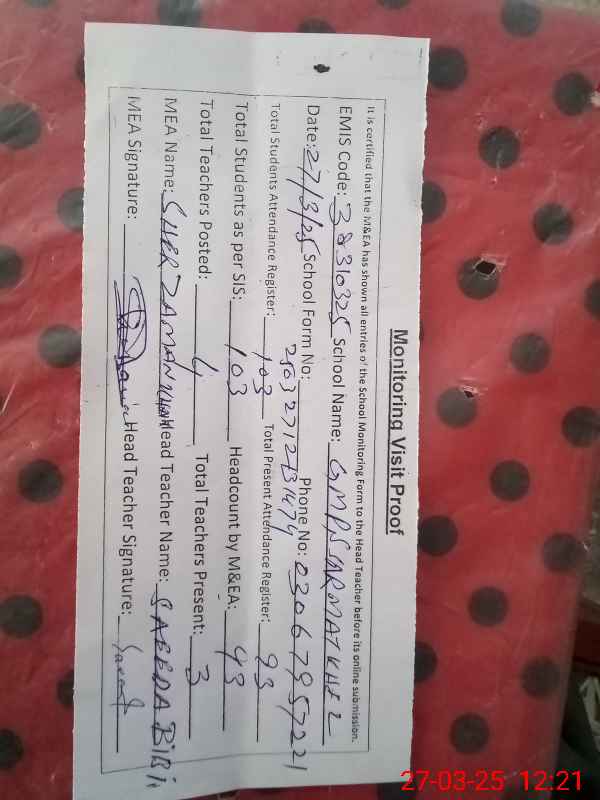 Monitoring Visit Proof
It is certified that the M&EA has shown all entries of the School Monitoring Form to the Head Teacher before its online submission.
EMIS Code: 38310325 School Name: GMPS SARMATKHEL
Date: 27/3/25 School Form No: 2503271213 1474 Phone No: 03067957221
Total Students Attendance Register: 103 Total Present Attendance Register: 93
Total Students as per SIS: 103 Headcount by M&EA: 93
Total Teachers Posted: 4 Total Teachers Present: 3
MEA Name: SHER ZAMAN KHAN Head Teacher Name: SAEEDA BIBI
MEA Signature: Head Teacher Signature: Saeeda
27-03-25 12:21